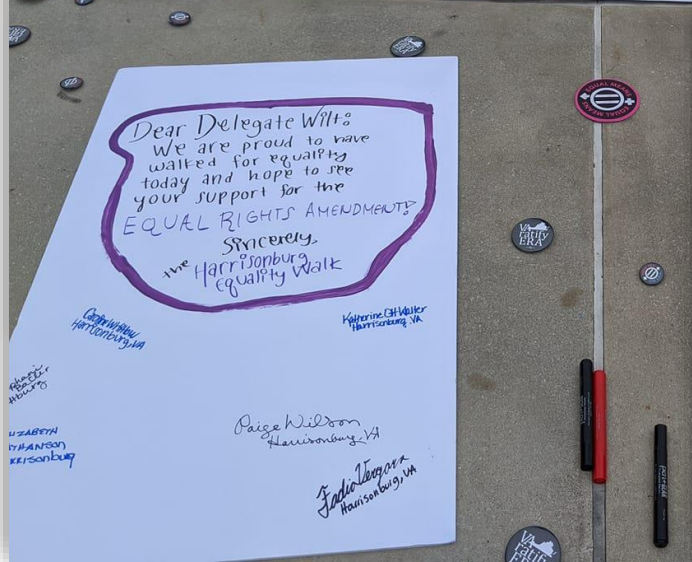 Dear Delegate Wilt:
We are proud to have
walked for equality
today and hope to see
your support for the
EQUAL RIGHTS AMENDMENT!
Sincerely,
the Harrisonburg
Equality Walk
Harrisonburg, VA
Katherine
Harrisonburg, VA
Paige Wilson
Harrisonburg, VA
Harrisonburg, VA
EQUAL MEANS
EQUAL MEANS
VA
ratify
ERA
VA
ratify
ERA